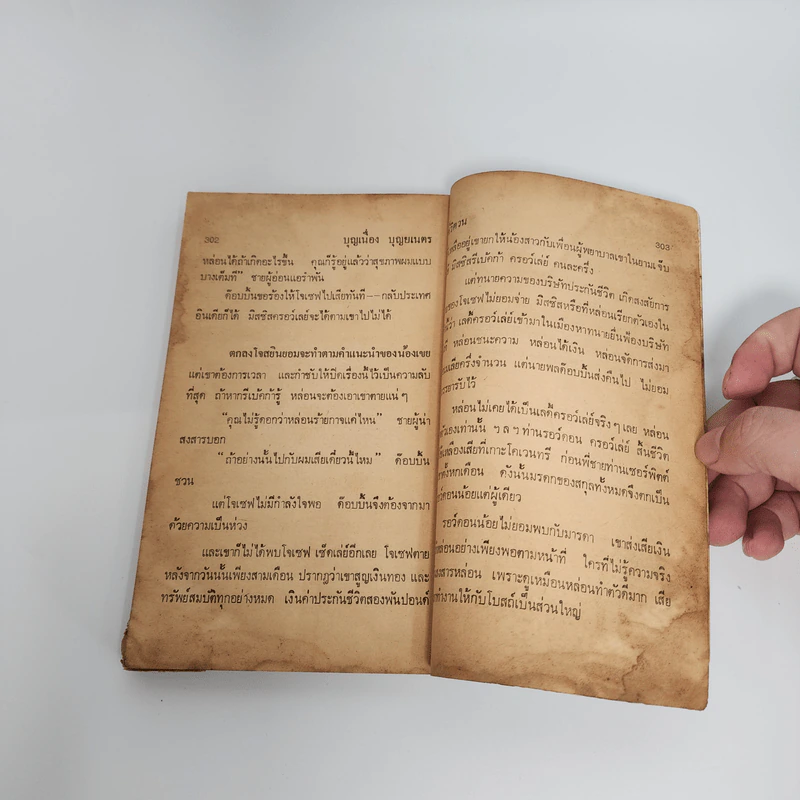 302 บุญเนื่อง บุณยเนตร
หล่อนได้ถ้าเกิดอะไรขึ้น คุณก็รู้อยู่แล้วว่าสุขภาพผมแบบ
บางเต็มที” ชายผู้อ่อนแอรำพัน
ด๊อบบิ้นขอร้องให้โจเซฟไปเสียทันที--กลับประเทศ
อินเดียก็ได้ มิสซิสครอว์เลย์จะได้ตามเขาไปไม่ได้
ตกลงโจสยินยอมจะทำตามคำแนะนำของน้องเขย
แต่เขาต้องการเวลา และกำชับให้ปิดเรื่องนี้ไว้เป็นความลับ
ที่สุด ถ้าหากรีเบ้คก้ารู้ หล่อนจะต้องเอาเขาตายแน่ ๆ
“คุณไม่รู้ดอกว่าหล่อนร้ายกาจแค่ไหน” ชายผู้น่า
สงสารบอก
“ถ้าอย่างนั้นไปกับผมเสียเดี๋ยวนี้ไหม” ด๊อบบิ้น
ชวน
แต่โจเซฟไม่มีกำลังใจพอ ด๊อบบิ้นจึงต้องจากมา
ด้วยความเป็นห่วง
และเขาก็ไม่ได้พบโจเซฟ เซ็ดเล่ย์อีกเลย โจเซฟตาย
หลังจากวันนั้นเพียงสามเดือน ปรากฏว่าเขาสูญเงินทอง และ
ทรัพย์สมบัติทุกอย่างหมด เงินค่าประกันชีวิตสองพันปอนด์
303
อยู่เขายกให้น้องสาวกับเพื่อนผู้พยาบาลเขาในยามเจ็บ
มิสซิสรีเบ้คก้า ครอว์เล่ย์ คนละครึ่ง
แต่ทนายความของบริษัทประกันชีวิต เกิดสงสัยการ
ของโจเซฟไม่ยอมจ่าย มิสซิสหรือที่หล่อนเรียกตัวเองใน
ว่า เลดี้ครอว์เล่ย์เข้ามาในเมืองหาทนายยื่นฟ้องบริษัท
หล่อนชนะความ หล่อนได้เงิน หล่อนจัดการส่งมา
เสียครึ่งจำนวน แต่นายพลด๊อบบิ้นส่งคืนไป ไม่ยอม
รับไว้
หล่อนไม่เคยได้เป็นเลดี้ครอว์เล่ย์จริง ๆ เลย หล่อน
ตัวเองเท่านั้น ฯ ล ฯ ท่านรอว์ดอน ครอว์เล่ย์ สิ้นชีวิต
เหลืองเสียที่เกาะโคเวนทรี ก่อนพี่ชายท่านเซอร์พิตต์
ตั้งหกเดือน ดังนั้นมรดกของสกุลทั้งหมดจึงตกเป็น
รอว์ดอนน้อยแต่ผู้เดียว
รอว์ดอนน้อยไม่ยอมพบกับมารดา เขาส่งเสียเงิน
หล่อนอย่างเพียงพอตามหน้าที่ ใครที่ไม่รู้ความจริง
สงสารหล่อน เพราะดูเหมือนหล่อนทำตัวดีมาก เสีย
ทำงานให้กับโบสถ์เป็นส่วนใหญ่